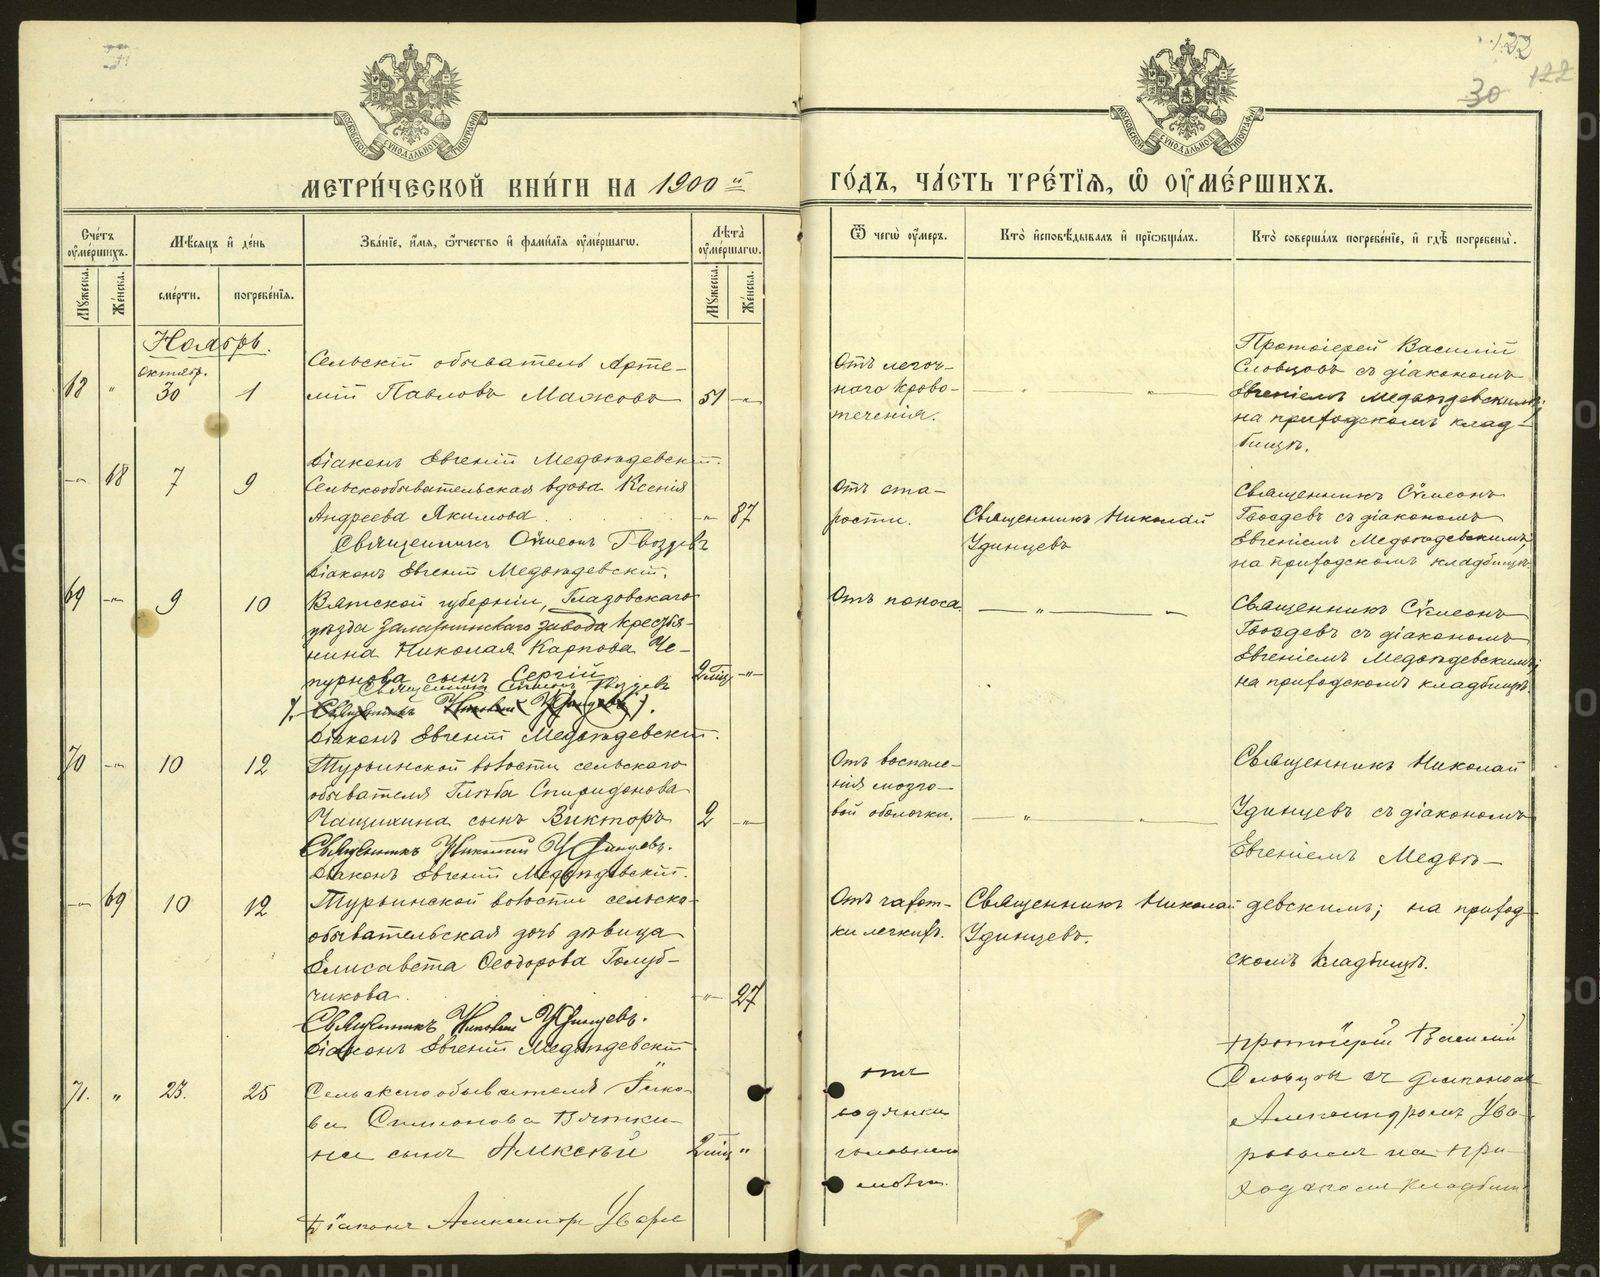 122
122
30
МОСКОВСКОЙ СѴНОДАЛЬНОЙ ТИПОГРАФІИ
МОСКОВСКОЙ СѴНОДАЛЬНОЙ ТИПОГРАФІИ
МЕТРИ́ЧЕСКОЙ КНИ́ГИ НА 1900й
ГО́ДЪ, ЧА́СТЬ ТРЕ́ТІѦ, Ѡ҆ ОУ҆МЕ́РШИХЪ.
Сче́тъ оу҆ме́ршихъ.
Мꙋ́жеска.
Же́нска.
Мѣ́сѧцъ и҆ де́нь
сме́рти.
погребе́нїѧ.
Зва́нїе, и҆́мѧ, ѻ҆́тчество и҆ фами́лїѧ оу҆ме́ршагѡ.
Лѣ̑та оу҆ме́ршагѡ.
Мꙋ́жеска.
Же́нска.
Ѿ чегѡ̀ оу҆́меръ.
Кто̀ и҆сповѣ́дывалъ и҆ прїѡбща́лъ.
Кто̀ соверша́лъ погребе́нїе, и҆ гдѣ̀ погребены̀.
Ноябрь.
68 " октябр. 30 1
Сельскій обыватель Арте-
мій Павловъ Мажовъ 51 -"-
Отъ легоч-
наго крово-
теченія.
Протоіерей Василій
Словцовъ съ діакономъ
Евгеніемъ Медвѣдевскимъ;
на приходскомъ клад-
бищѣ.
Діаконъ Евгеній Медвѣдевскій.
-"- 68 7 9
Сельскообывательская вдова Ксенія
Андреева Якимова -"- 87
Отъ ста-
рости.
Священникъ Николай
Удинцевъ
Священникъ Сѵмеонъ
Гвоздевъ съ діакономъ
Евгеніемъ Медвѣдевскимъ;
на приходскомъ кладбищѣ.
Священникъ Сѵмеонъ Гвоздевъ
Діаконъ Евгеній Медвѣдевскій.
69 -"- 9 10
Вятской губерніи, Глазовскаго
уѣзда Залазнинскаго завода крестья-
нина Николая Карпова Че-
пурнова сынъ Сергій 2 мѣс. -"-
Отъ поноса
Священникъ Сѵмеонъ
Гвоздевъ съ діакономъ
Евгеніемъ Медвѣдевскимъ;
на приходскомъ кладбищѣ.
Священникъ Сѵмеонъ Гвоздевъ
Священникъ Николай Удинцевъ.
Діаконъ Евгеній Медвѣдевскій.
70 -"- 10 12
Турьинской волости сельскаго
обывателя Глѣба Спиридонова
Чащихина сынъ Викторъ 2 -"-
Отъ воспале-
нія мозго-
вой оболочки.
Священникъ Николай
Удинцевъ съ діакономъ
Евгеніемъ Медвѣ-
Священникъ Николай Удинцевъ.
Діаконъ Евгеній Медвѣдевскій.
-"- 69 10 12
Турьинской волости сельско-
обывательская дочь дѣвица
Елисавета Ѳеодорова Голуб-
чикова -"- 27
Отъ чахот-
ки легкихъ.
Священникъ Николай
Удинцевъ.
девскимъ; на приход-
скомъ кладбищѣ.
Священникъ Николай Удинцевъ.
Діаконъ Евгеній Медвѣдевскій
71. " 23. 25
Сельскаго обывателя Іако-
ва Симеонова Вятки-
на сынъ Алексѣй 2 мѣс "
отъ
водянки
головнаго
мозга.
Протоіерей Василій
Словцовъ съ діакономъ
Александромъ Ува-
ровымъ на при-
ходскомъ кладбищѣ
Діаконъ Александръ Уваро
METRIKI.GASO-URAL.RU